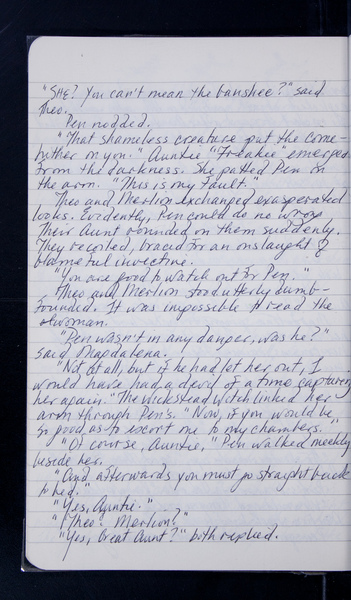 "SHE? You can't mean the banshee?" said
Theo.
Pen nodded.
"That shameless creature put the come-
hither on you." Auntie "Freakie" emerged
from the darkness. She patted Pen on
the arm. "This is my fault."
Theo and Merlion exchanged exasperated
looks. Evidently, Pen could do no wrong
Their Aunt rounded on them suddenly.
They recoiled, braced for an onslaught of
blameful invective.
"You are good to watch out for Pen."
Theo and Merlion stood utterly dumb-
founded. It was impossible to read the
woman.
"Pen wasn't in any danger, was he?"
said Magdalena.
"Not at all, but if he had let her out, I
would have had a devil of a time capturing
her again." The Wickstead Witch linked her
arm through Pen's. "Now, if you would be
so good as to escort me to my chambers."
"Of course, Auntie," Pen walked meekly
beside her.
"And afterwards you must go straight back
to bed."
"Yes, Auntie."
"Theo? Merlion?"
"Yes, Great Aunt?" both replied.